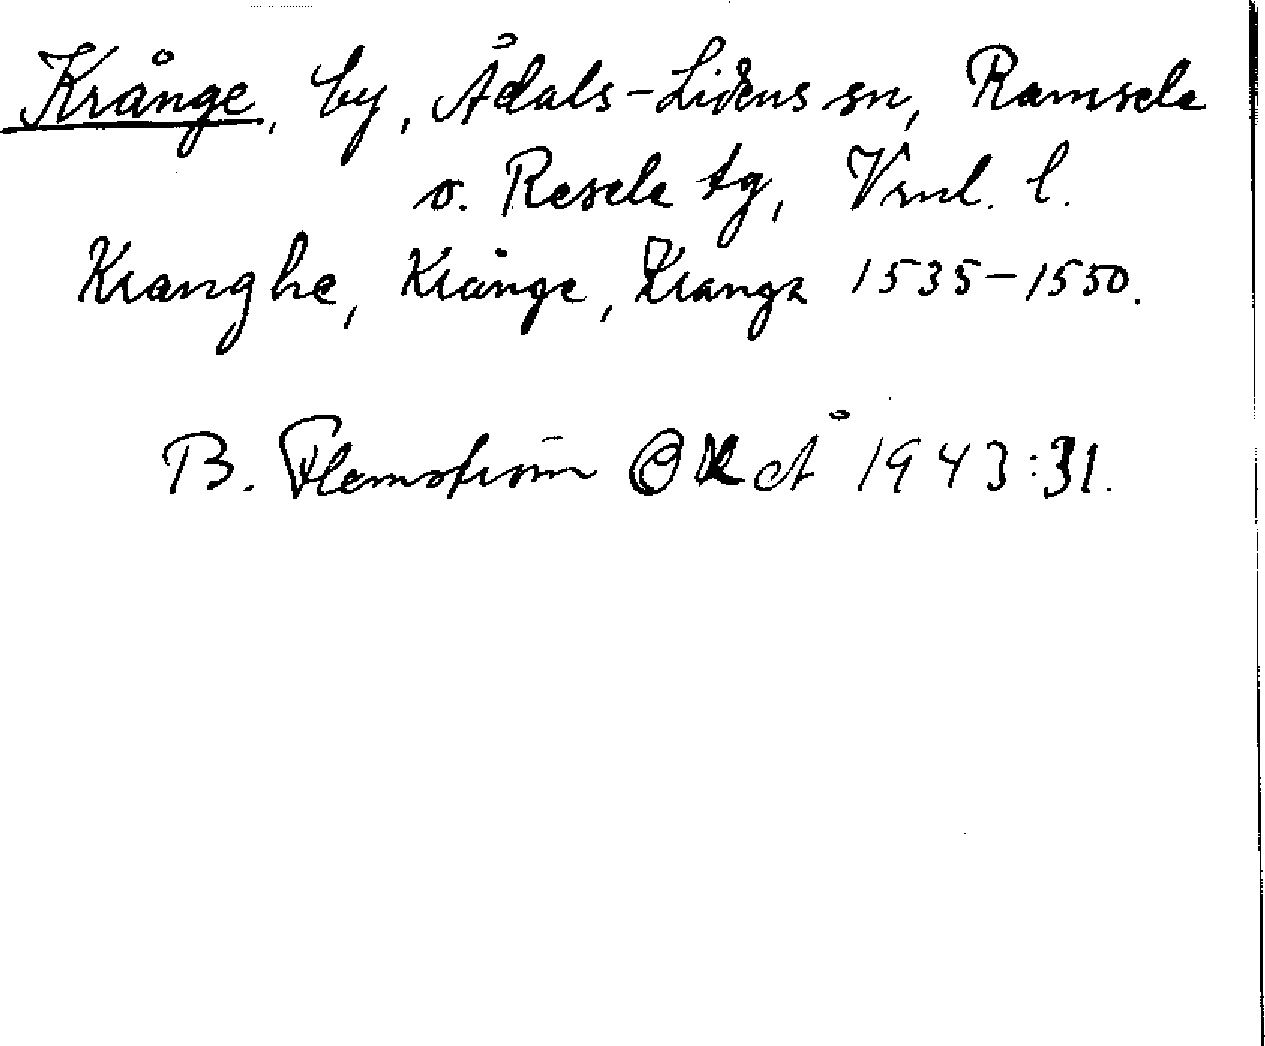 Krånge, by, Ådals-Lidens sn, Ramsele
o. Resele tg, Vrnl. l.
Kranghe, Krånge, Kranga 1535-1550.
B. Flemström 1943:31.